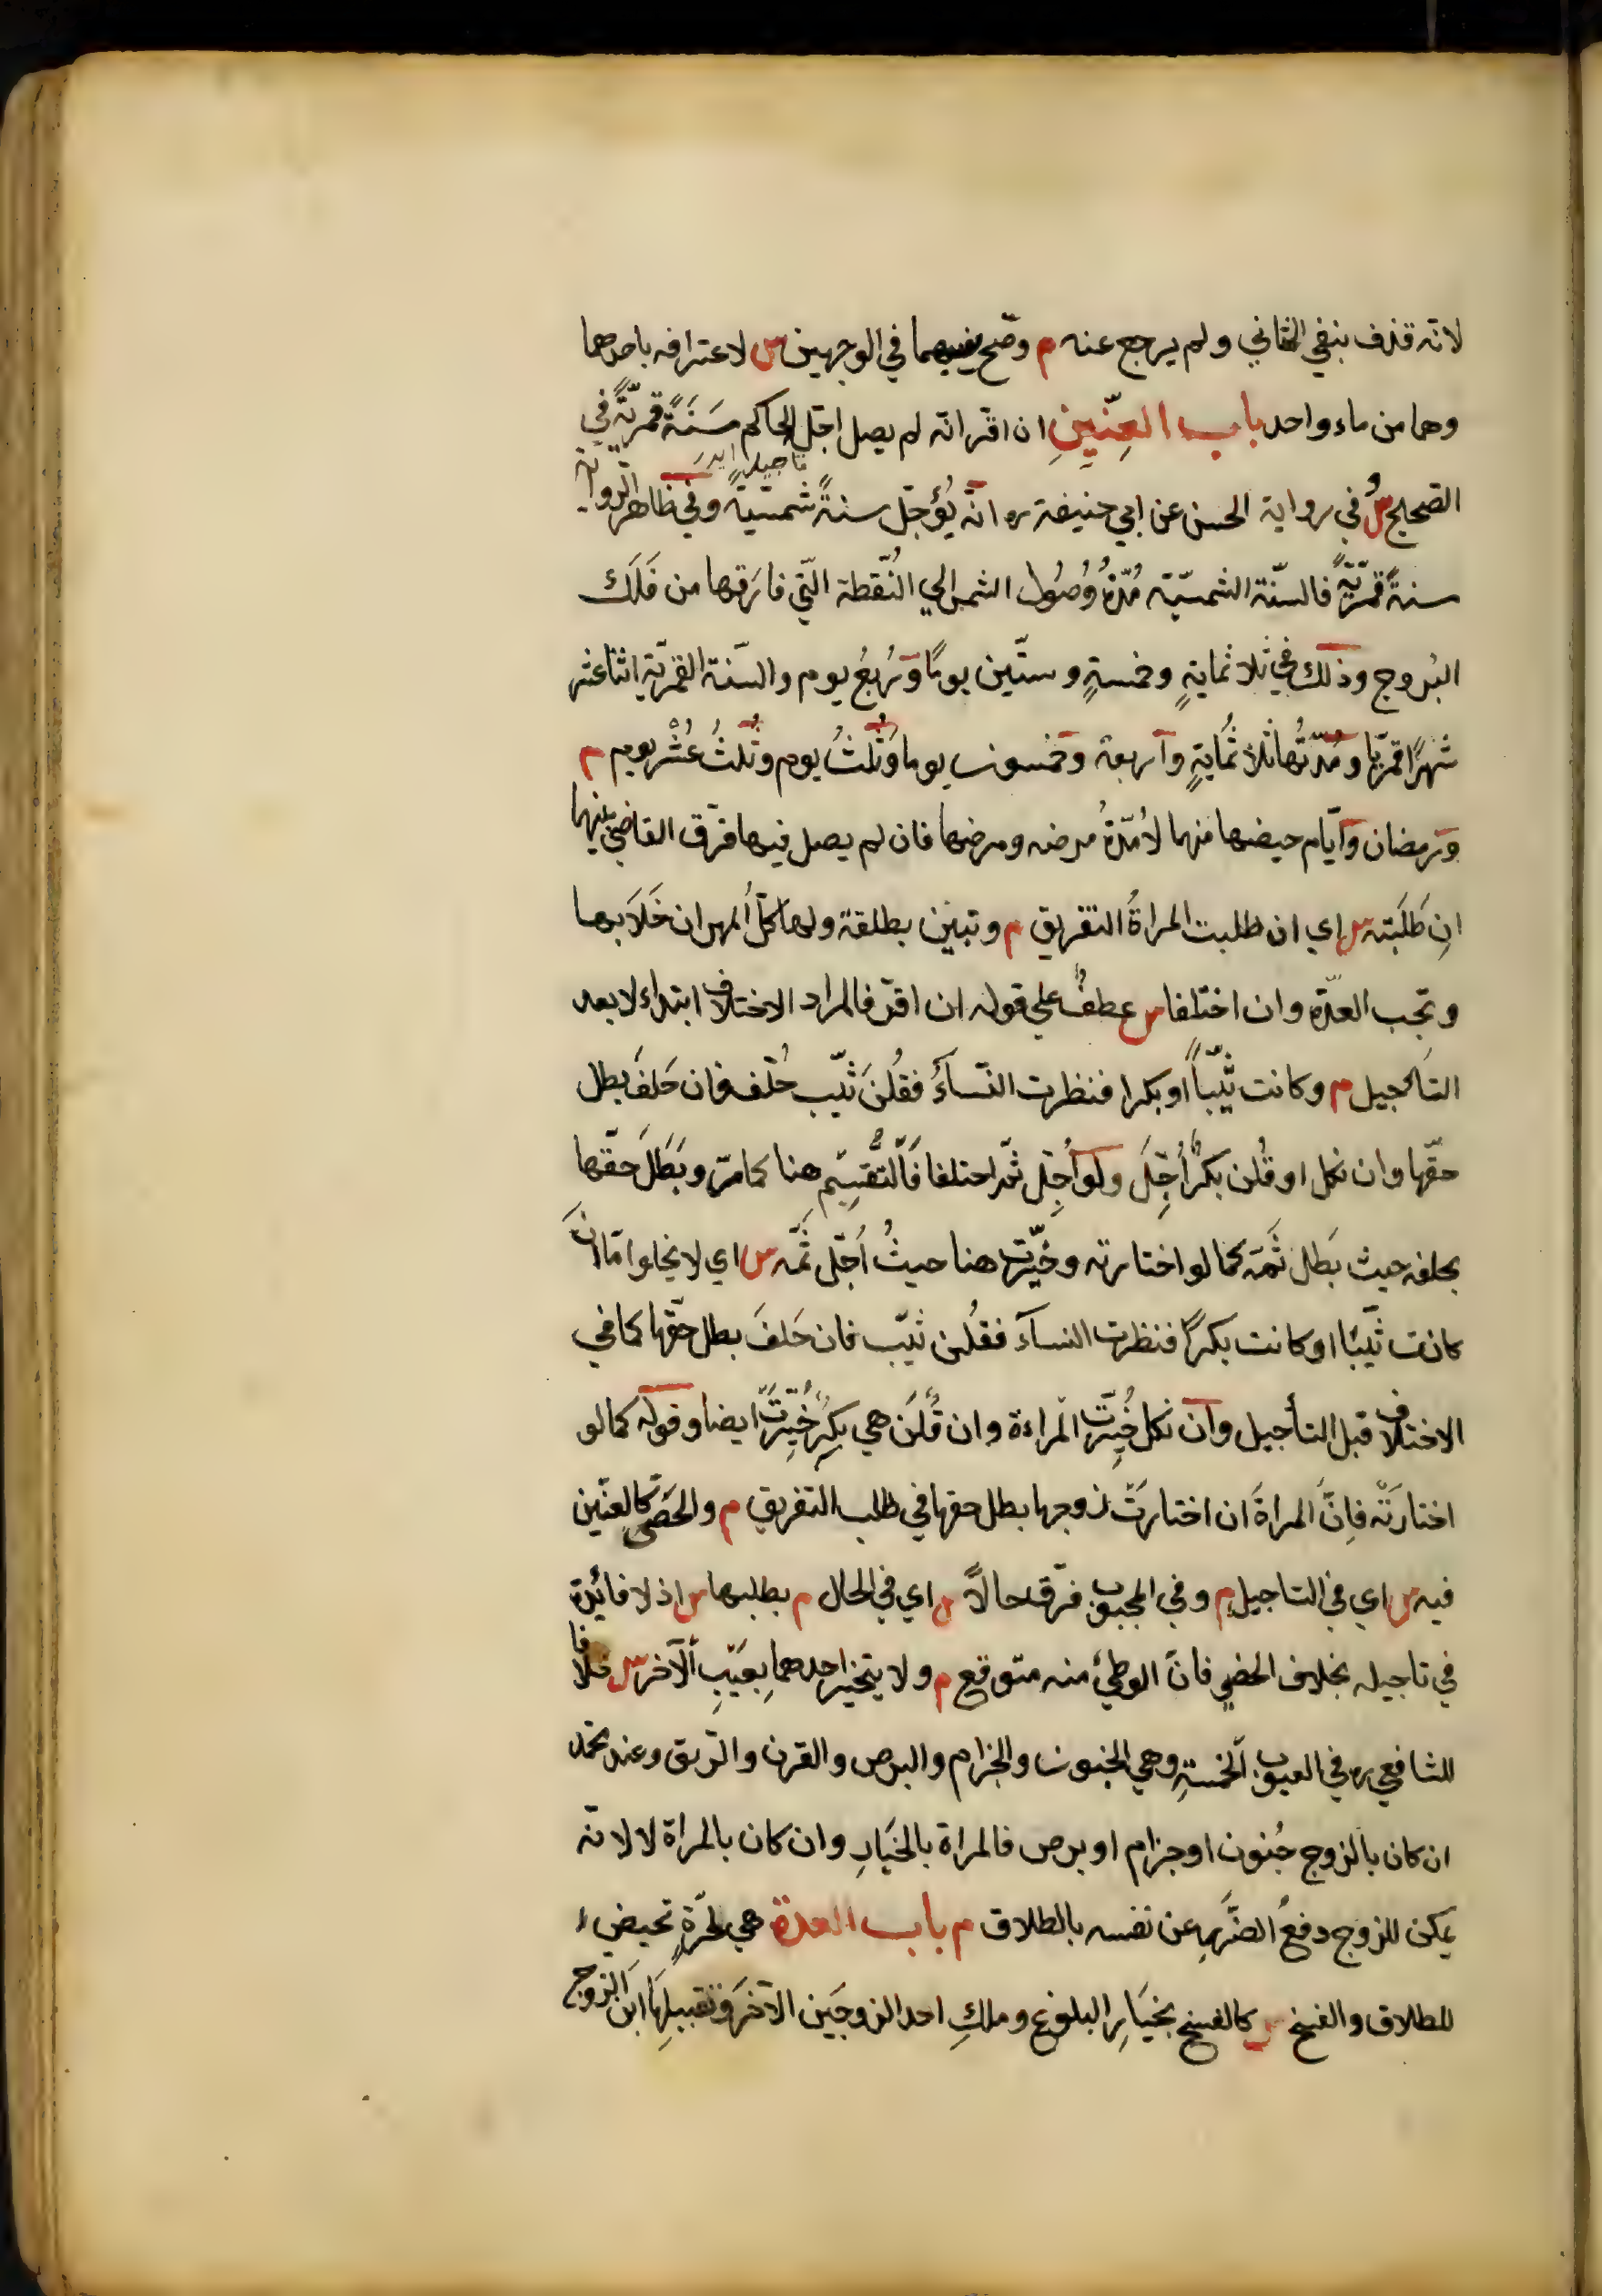 لانه قذف بنفي الثاني ولم يرجع عنه م وصح نسبهما في الوجهين س لاعترافه باحدهما
وهما من ماء واحد باب العِنِّينِ ان اقرّ انه لم يصل اجّل الحاكم سَنَةً قمريّةً في
الصحيح س وفي رواية الحسن عن ابي حنيفة ره انّه يُؤجّل سنةً شمسيّةً وفي ظاهر الرواية
سنةً قمريّةً فالسّنة الشمسيّة مُدّةُ وُصُول الشمس الي النُّقطة الّتي فارَقها من فَلَك
البُروج وذلك في ثلاثمايةٍ وخمسةٍ وستّين يومًا ورُبعُ يوم والسّنة القمريّة اثنا عشر
شهرًا قمريّا ومُدّتُها ثلاثُمايةٍ وأربعة وخمسون يوما وثُلثُ يوم وثُلثُ عُشْر يوم م
ورمضان وأيّام حيضها منهما لا مُدّةُ مرضه ومرضها فان لم يصل فيها فرّق القاضي بينهما
اِن طَلَبَته س اي ان طلبت المراةُ التفريق م وتبين بطلقة ولها كلّ المهر ان خَلاَ بها
وتجب العدّة وان اختلفا س عطفٌ علي قوله ان اقرّ فالمراد الاختلاف ابتداء لا بعد
التاجيل م وكانت ثيّباً او بكرا فنظرت النّسآءُ فقُلنَ ثيّب حُلّف فان حَلفَ بطل
حقّها وان نكل او قُلن بكرٌ أُجِّلَ ولو أُجِّل ثمّ اختلفا فَالتّقسيم هنا كما مرّ وبَطَلَ حقّها
بحلفه حيث بَطل ثَمّه كما لو اختارته وخُيّرت هنا حيثُ اُجّل ثَمَّه س اي لا يخلوا امّا انْ
كانت ثيّبًا او كانت بكرًا فنظرت النسآءُ فقُلن ثيّب فان حَلفَ بطل حقّها كما في
الاختلاف قبل التأجيل وان نكل خُيِّرتِ المراءة وان قُلنَ هي بكرٌ خُيّرَت ايضا وقوله كما لو
اختارَتْه فاِنَّ المراةَ ان اختارَتْ زوجها بطل حقها في طلب التفريق م والخصي كالعنّين
فيه س اي في التاجيل م وفي المجبوب فرّق حالاً س اي في الحال م بطلبها س اذ لا فائدة
في تاجيله بخلاف الخصي فانّ الوطئ منه متوقع م ولا يتخيّر احدهما بِعَيْبِ الآخر س خلافا
للشافعي ره في العيوب الخمسةِ وهي الجنون والجذام والبرص والقرن والرتق وعند محمد
ان كان بالزوج جُنون او جذام او برص فالمراة بالخيَارِ وان كان بالمراة لا لانه
يمكن للزوج دفعُ الضَّررِ عن نفسه بالطلاق م باب العدة هي لحرّةٍ تحيض
للطلاق والفسخ س كالفسخ بخيَارِ البلوغ وملكِ احد الزوجَين الآخرَ وتقبيلِها ابن الزوج